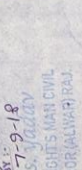 BY :-
7-9-18
S. Yadav
GHTS MAN CIVIL
OR (ALWAR) RAJ.